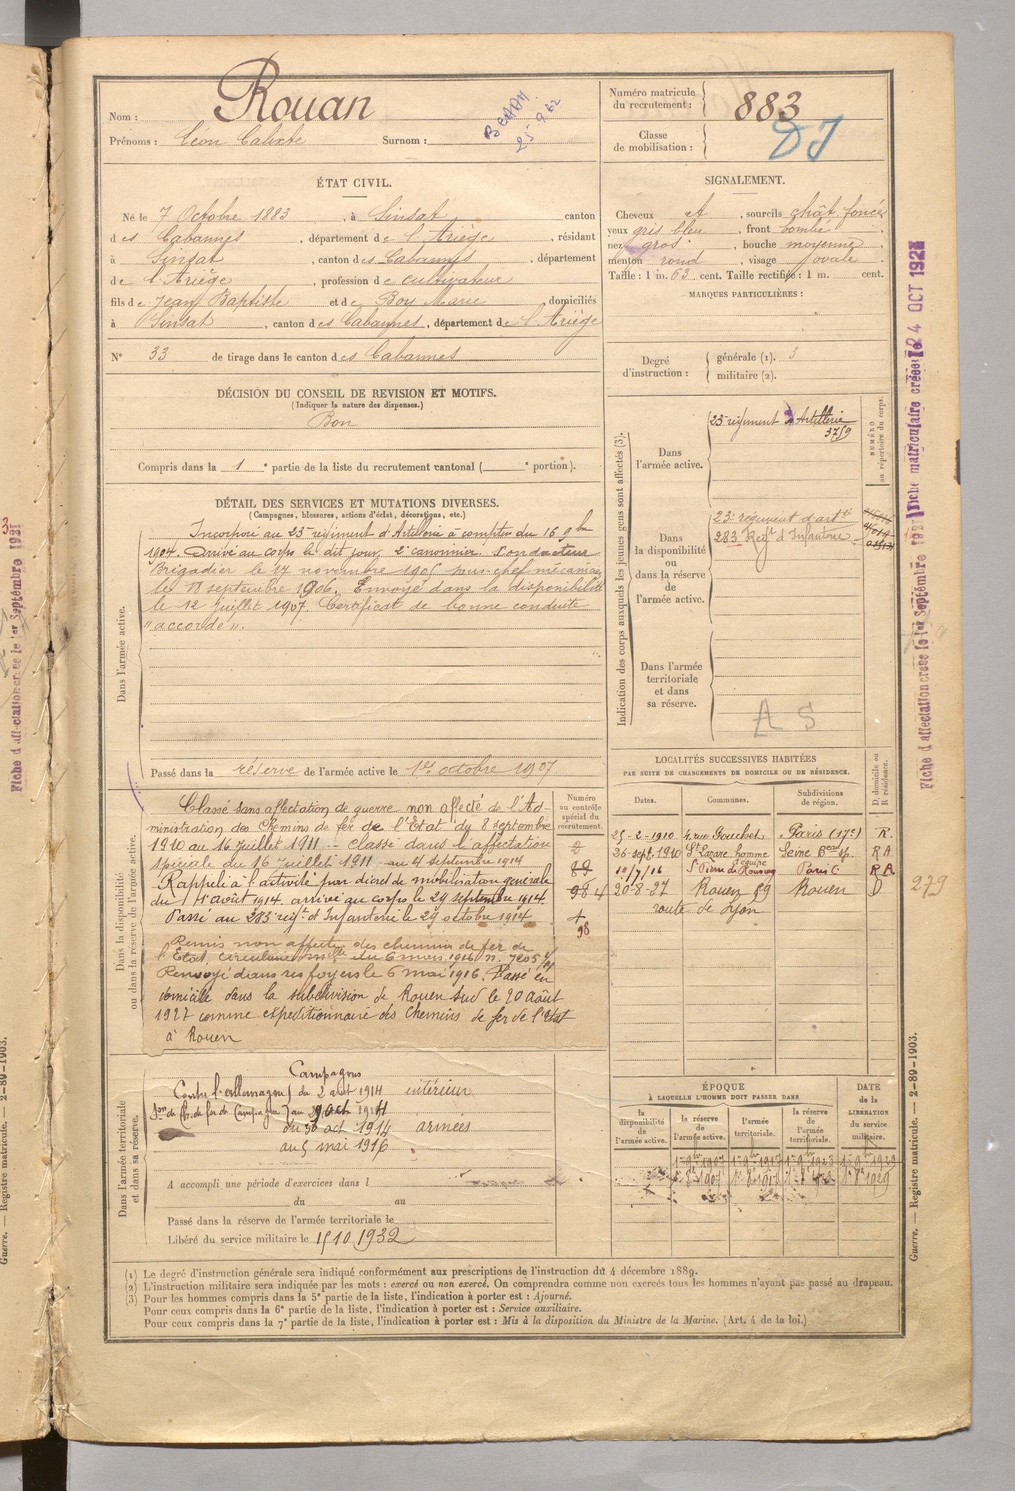 Nom : Rouan
Prénoms : Léon Calixte Surnom :
BEAM. 25.9.62
Numéro matricule du recrutement : 883
Classe de mobilisation :
ÉTAT CIVIL.
Né le 7 Octobre 1883, à Sinsat canton
des Cabannes, département de l'Ariège, résidant
à Sinsat, canton des Cabannes, département
de l'Ariège, profession de cultivateur
fils de Jean Baptiste et de Boy Marie domiciliés
à Sinsat, canton des Cabannes, département de l'Ariège
N° 33 de tirage dans le canton des Cabannes
SIGNALEMENT.
Cheveux et, sourcils chât foncés
yeux gris bleu, front bombé
nez gros, bouche moyenne
menton rond, visage ovale
Taille : 1 m. 63 cent. Taille rectifiée : 1 m. cent.
MARQUES PARTICULIÈRES :
Degré d'instruction : générale (1). 3
militaire (2).
DÉCISION DU CONSEIL DE REVISION ET MOTIFS.
(Indiquer la nature des dispenses.)
Bon
Compris dans la 1e partie de la liste du recrutement cantonal ( e portion).
DÉTAIL DES SERVICES ET MUTATIONS DIVERSES.
(Campagnes, blessures, actions d'éclat, décorations, etc.)
Dans l'armée active.
Incorporé au 23e régiment d'Artillerie à compter du 16 9bre
1904. Arrivé au corps le dit jour, 2e canonnier. Conducteur
Brigadier le 17 novembre 1905 sous-chef mécanicien
le 11 septembre 1906. Envoyé dans la disponibilité
le 12 juillet 1907. Certificat de bonne conduite
"accordé".
Passé dans la réserve de l'armée active le 1er octobre 1907
Indication des corps auxquels les jeunes gens sont affectés (3).
NUMÉRO au répertoire du corps.
Dans l'armée active.
23e régiment d'Artillerie
3759
Dans la disponibilité ou dans la réserve de l'armée active.
23e régiment d'artie
283 Regt d'Infanterie
Dans l'armée territoriale et dans sa réserve.
A S
Dans la disponibilité ou dans la réserve de l'armée active.
Classé sans affectation de guerre non affecté de l'Ad-
ministration des Chemins de fer de l'Etat du 8 septembre
1910 au 16 juillet 1911 - classé dans l'affectation
spéciale du 16 juillet 1911 - au 4 septembre 1914
Rappelé à l'activité par décret de mobilisation générale
du 1er août 1914, arrivé au corps le 29 septembre 1914
Passé au 283 regt d'Infanterie le 29 octobre 1914
Remis non affecté des chemins de fer de
l'Etat, circulaire mlle du 6 mars 1916 n.
Renvoyé dans ses foyers le 6 mai 1916. Passé en
domicile dans la subdivision de Rouen Sud le 20 Août
1927 comme expeditionnaire des Chemins de fer de l'Etat
à Rouen
Numéro au contrôle spécial du recrutement.
89
98
LOCALITÉS SUCCESSIVES HABITÉES
PAR SUITE DE CHANGEMENTS DE DOMICILE OU DE RÉSIDENCE.
Dates. Communes. Subdivisions de région. D. domicile ou R résidence.
25-2-1910 4, rue Gouchet Paris (17e) R.
26 sept. 1910 St Lazare homme d'équipe Seine Beau sp. R A
10/7/16 Paris C R A
20-8-27 Rouen 89 route de Lyon Rouen D
279
Dans l'armée territoriale et dans sa réserve.
Campagnes
Contre l'allemagne du 2 août 1914 intérieur
au 29 oct 1914
du 30 oct 1914 armées
au 5 mai 1916
A accompli une période d'exercices dans l
du au
Passé dans la réserve de l'armée territoriale le
Libéré du service militaire le 15/10/1932
ÉPOQUE
À LAQUELLE L'HOMME DOIT PASSER DANS
la disponibilité de l'armée active. la réserve de l'armée active. l'armée territoriale. la réserve de l'armée territoriale. DATE de la LIBÉRATION du service militaire.
(1) Le degré d'instruction générale sera indiqué conformément aux prescriptions de l'instruction du 4 décembre 1889.
(2) L'instruction militaire sera indiquée par les mots : exercé ou non exercé. On comprendra comme non exercés tous les hommes n'ayant pas passé au drapeau.
(3) Pour les hommes compris dans la 5e partie de la liste, l'indication à porter est : Ajourné.
Pour ceux compris dans la 6e partie de la liste, l'indication à porter est : Service auxiliaire.
Pour ceux compris dans la 7e partie de la liste, l'indication à porter est : Mis à la disposition du Ministre de la Marine. (Art. 4 de la loi.)
Fiche d'affectation créée le 1er Septembre 1921
Fiche matriculaire créée le 24 OCT 1927
Fiche d'affectation créée le 1er Septembre 1921
Guerre. — Registre matricule. — 2-89-1903.
Guerre. — Registre matricule. — 2-89-1903.